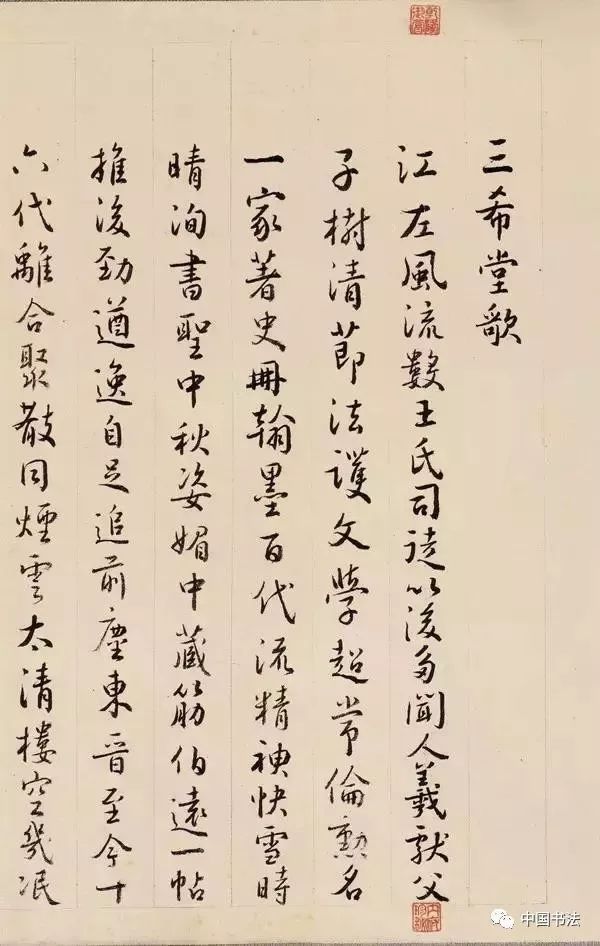 三希堂歌
江左風流數王氏司徒以後多聞人羲獻父
子樹清節法護文學超常倫勲名
一家著史冊翰墨百代流精神快雪時
晴洵書聖中秋姿媚中藏筋伯遠一帖
推後勁遒逸自足追前塵東晉至今十
六代離合聚散同煙雲太清樓空幾泯
中国书法